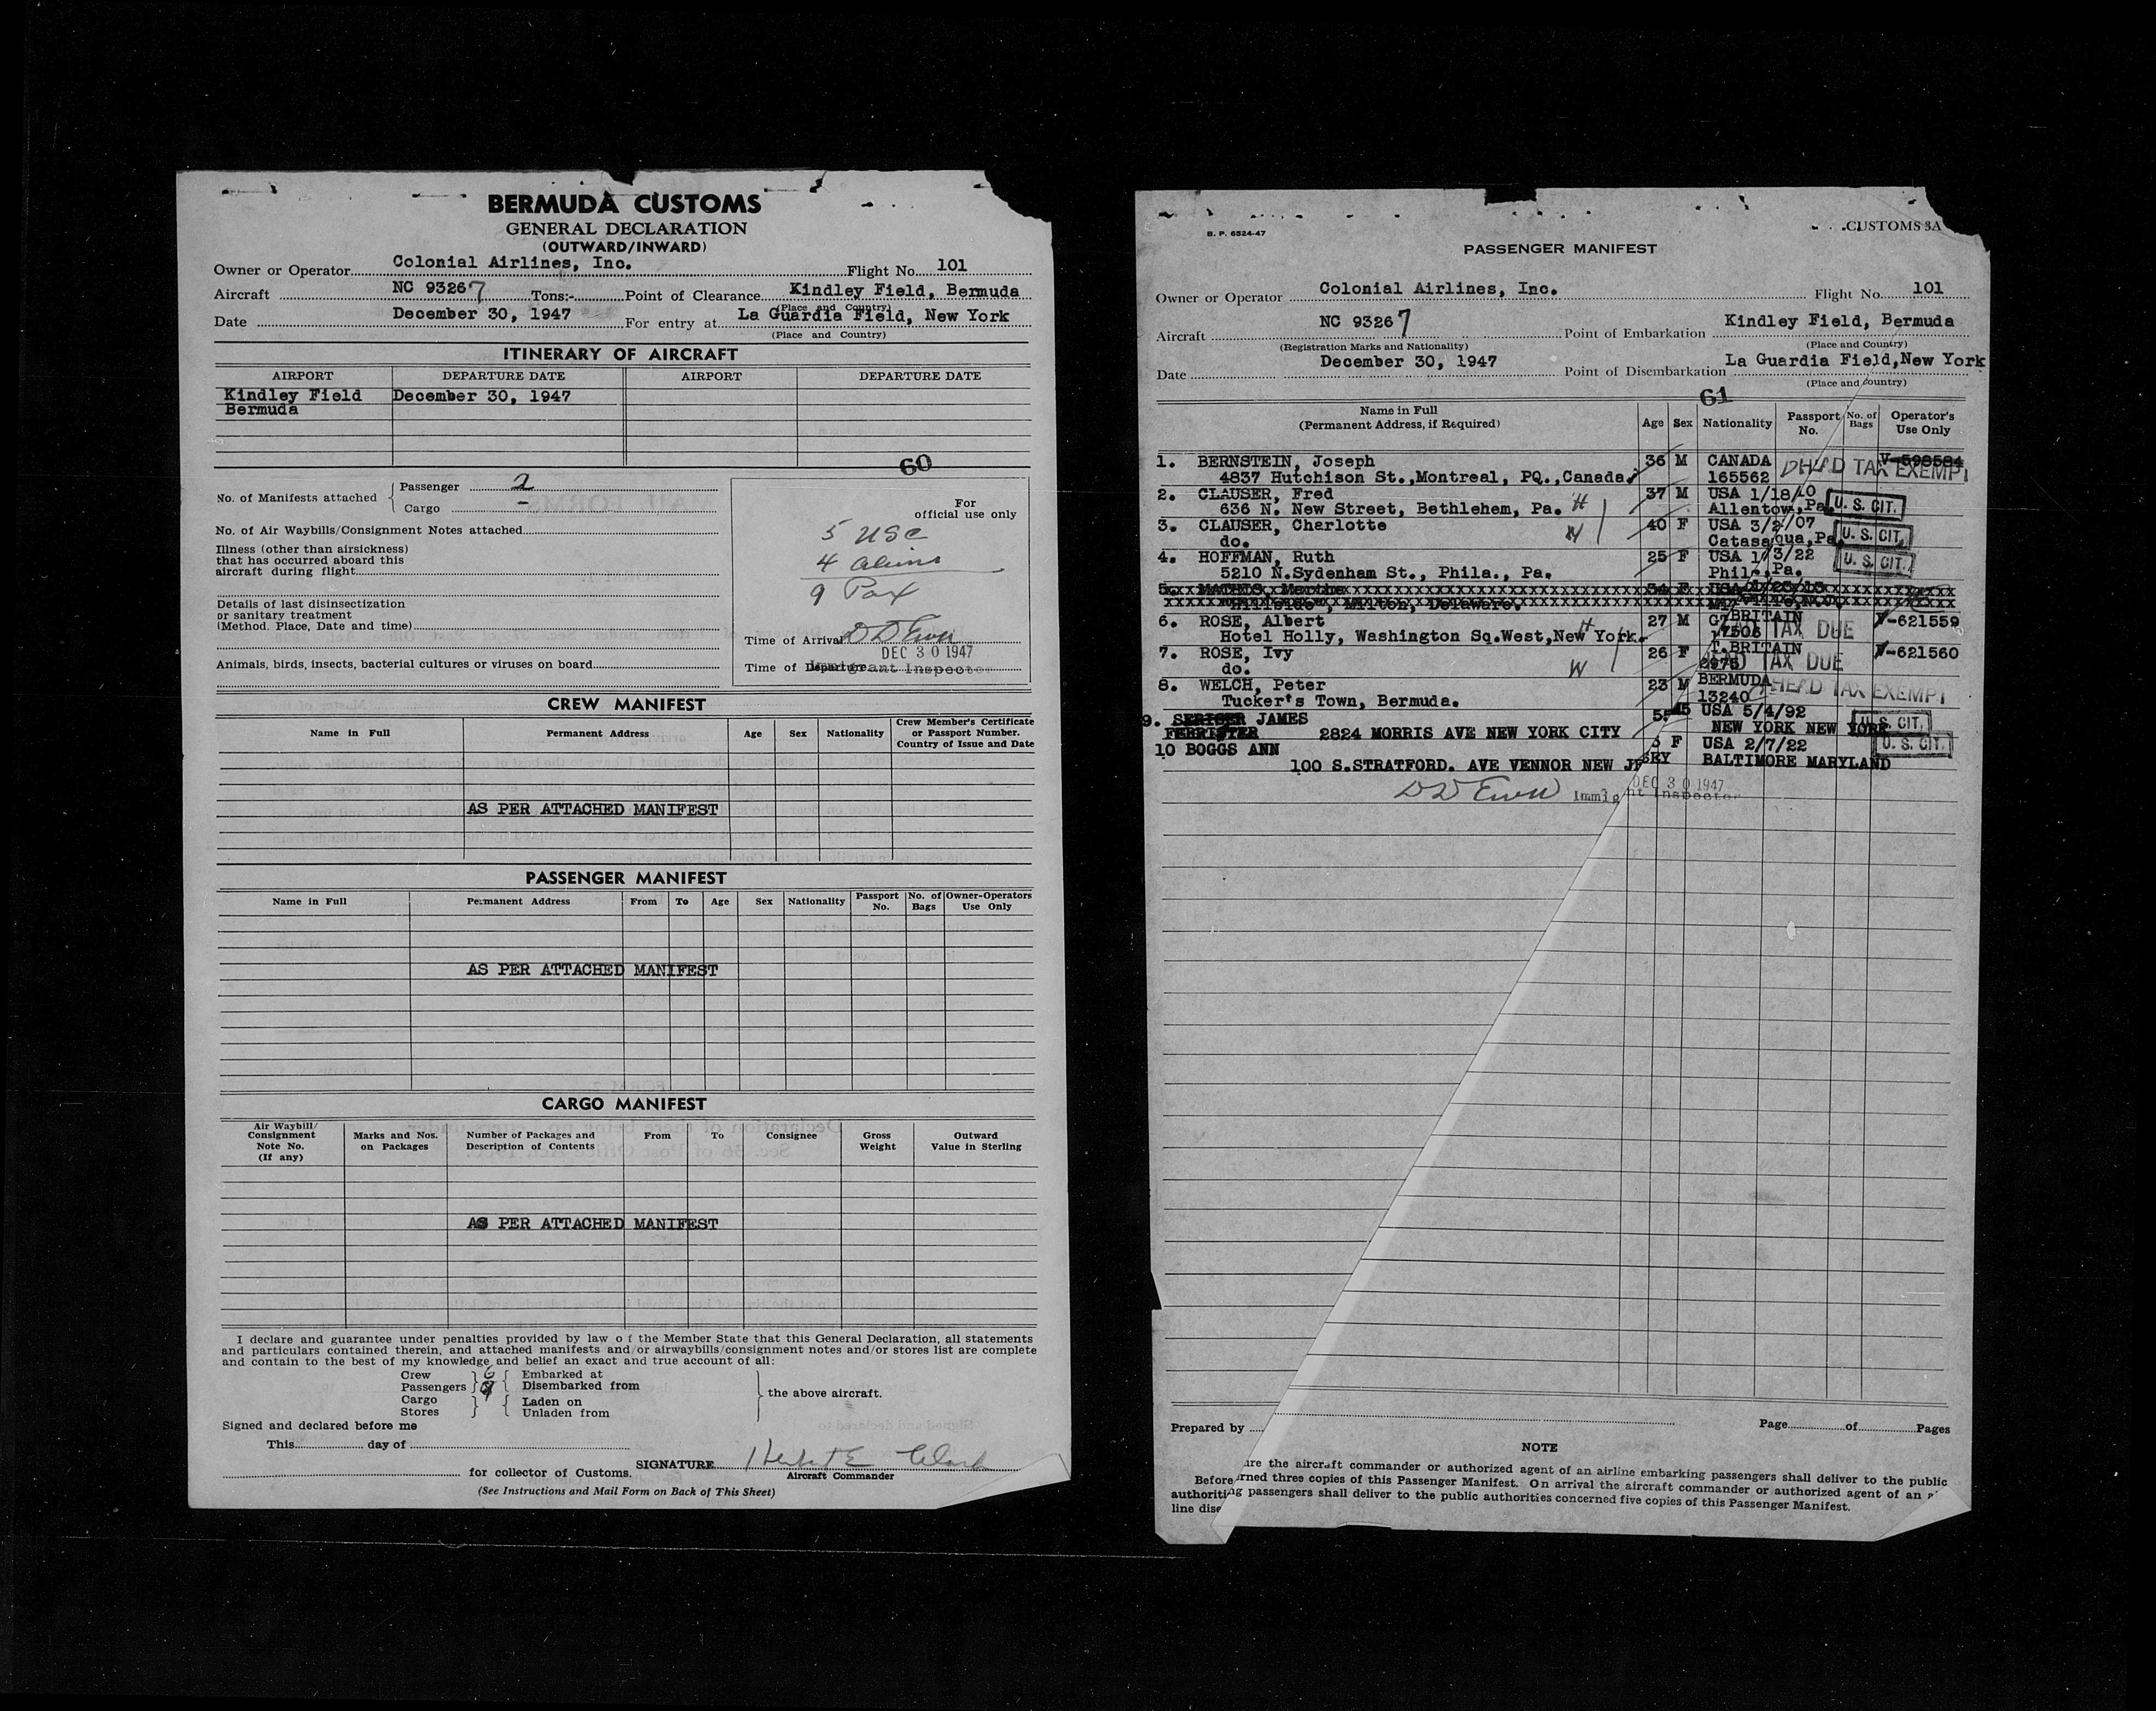 BERMUDA CUSTOMS
GENERAL DECLARATION
(OUTWARD/INWARD)
Owner or Operator Colonial Airlines, Inc. Flight No. 101
Aircraft NC 93267 Tons:- Point of Clearance Kindley Field, Bermuda
(Place and Country)
Date December 30, 1947 For entry at La Guardia Field, New York
(Place and Country)
ITINERARY OF AIRCRAFT
AIRPORT DEPARTURE DATE AIRPORT DEPARTURE DATE
Kindley Field December 30, 1947
Bermuda
60
No. of Manifests attached Passenger 2
Cargo -
For
official use only
No. of Air Waybills/Consignment Notes attached
5 USC
4 aliens
9 Pax
Illness (other than airsickness)
that has occurred aboard this
aircraft during flight
Details of last disinsectization
or sanitary treatment
(Method. Place, Date and time)
Time of Arrival
DEC 30 1947
Animals, birds, insects, bacterial cultures or viruses on board
Time of Departure Immigrant Inspector
CREW MANIFEST
Name in Full Permanent Address Age Sex Nationality Crew Member's Certificate
or Passport Number.
Country of Issue and Date
AS PER ATTACHED MANIFEST
PASSENGER MANIFEST
Name in Full Permanent Address From To Age Sex Nationality Passport No. No. of Bags Owner-Operators Use Only
AS PER ATTACHED MANIFEST
CARGO MANIFEST
Air Waybill/
Consignment
Note No.
(If any) Marks and Nos.
on Packages Number of Packages and
Description of Contents From To Consignee Gross
Weight Outward
Value in Sterling
AS PER ATTACHED MANIFEST
I declare and guarantee under penalties provided by law of the Member State that this General Declaration, all statements
and particulars contained therein, and attached manifests and/or airwaybills/consignment notes and/or stores list are complete
and contain to the best of my knowledge and belief an exact and true account of all:
Crew 6 Embarked at
Passengers 9 Disembarked from
the above aircraft.
Cargo Laden on
Stores Unladen from
Signed and declared before me
This day of
SIGNATURE
for collector of Customs. Aircraft Commander
(See Instructions and Mail Form on Back of This Sheet)
B. P. 6524-47
CUSTOMS 3A
PASSENGER MANIFEST
Owner or Operator Colonial Airlines, Inc. Flight No. 101
Aircraft NC 93267 Point of Embarkation Kindley Field, Bermuda
(Registration Marks and Nationality) (Place and Country)
Date December 30, 1947 Point of Disembarkation La Guardia Field,New York
(Place and Country)
61
Name in Full
(Permanent Address, if Required) Age Sex Nationality Passport No. No. of Bags Operator's Use Only
1. BERNSTEIN, Joseph 36 M CANADA HEAD TAX EXEMPT V-598584
4837 Hutchison St.,Montreal, PQ.,Canada. 165562
2. CLAUSER, Fred 37 M USA 1/18/10
636 N. New Street, Bethlehem, Pa. H Allentow,Pa. U. S. CIT.
3. CLAUSER, Charlotte 40 F USA 3/2/07
do. W Catasaqua,Pa. U. S. CIT.
4. HOFFMAN, Ruth 25 F USA 1/3/22
5210 N.Sydenham St., Phila., Pa. Phil.,Pa. U. S. CIT.
5. MATHES, Martha 34 F USA
"Hillside", Milton, Delaware.
6. ROSE, Albert 27 M GT.BRITAIN V-621559
Hotel Holly, Washington Sq.West,New York. H 17506 HEAD TAX DUE
7. ROSE, Ivy 26 F GT.BRITAIN V-621560
do. W 2975 HEAD TAX DUE
8. WELCH, Peter 23 M BERMUDA
Tucker's Town, Bermuda. 13240 HEAD TAX EXEMPT
9. JAMES 55 USA 5/4/92
2824 MORRIS AVE NEW YORK CITY NEW YORK NEW YORK U. S. CIT.
10 BOGGS ANN F USA 2/7/22 U. S. CIT.
100 S.STRATFORD. AVE VENNOR NEW JERSEY BALTIMORE MARYLAND
DEC 30 1947
Immigrant Inspector
Prepared by Page of Pages
NOTE
Before are the aircraft commander or authorized agent of an airline embarking passengers shall deliver to the public
authorities rned three copies of this Passenger Manifest. On arrival the aircraft commander or authorized agent of an
line dise ng passengers shall deliver to the public authorities concerned five copies of this Passenger Manifest.